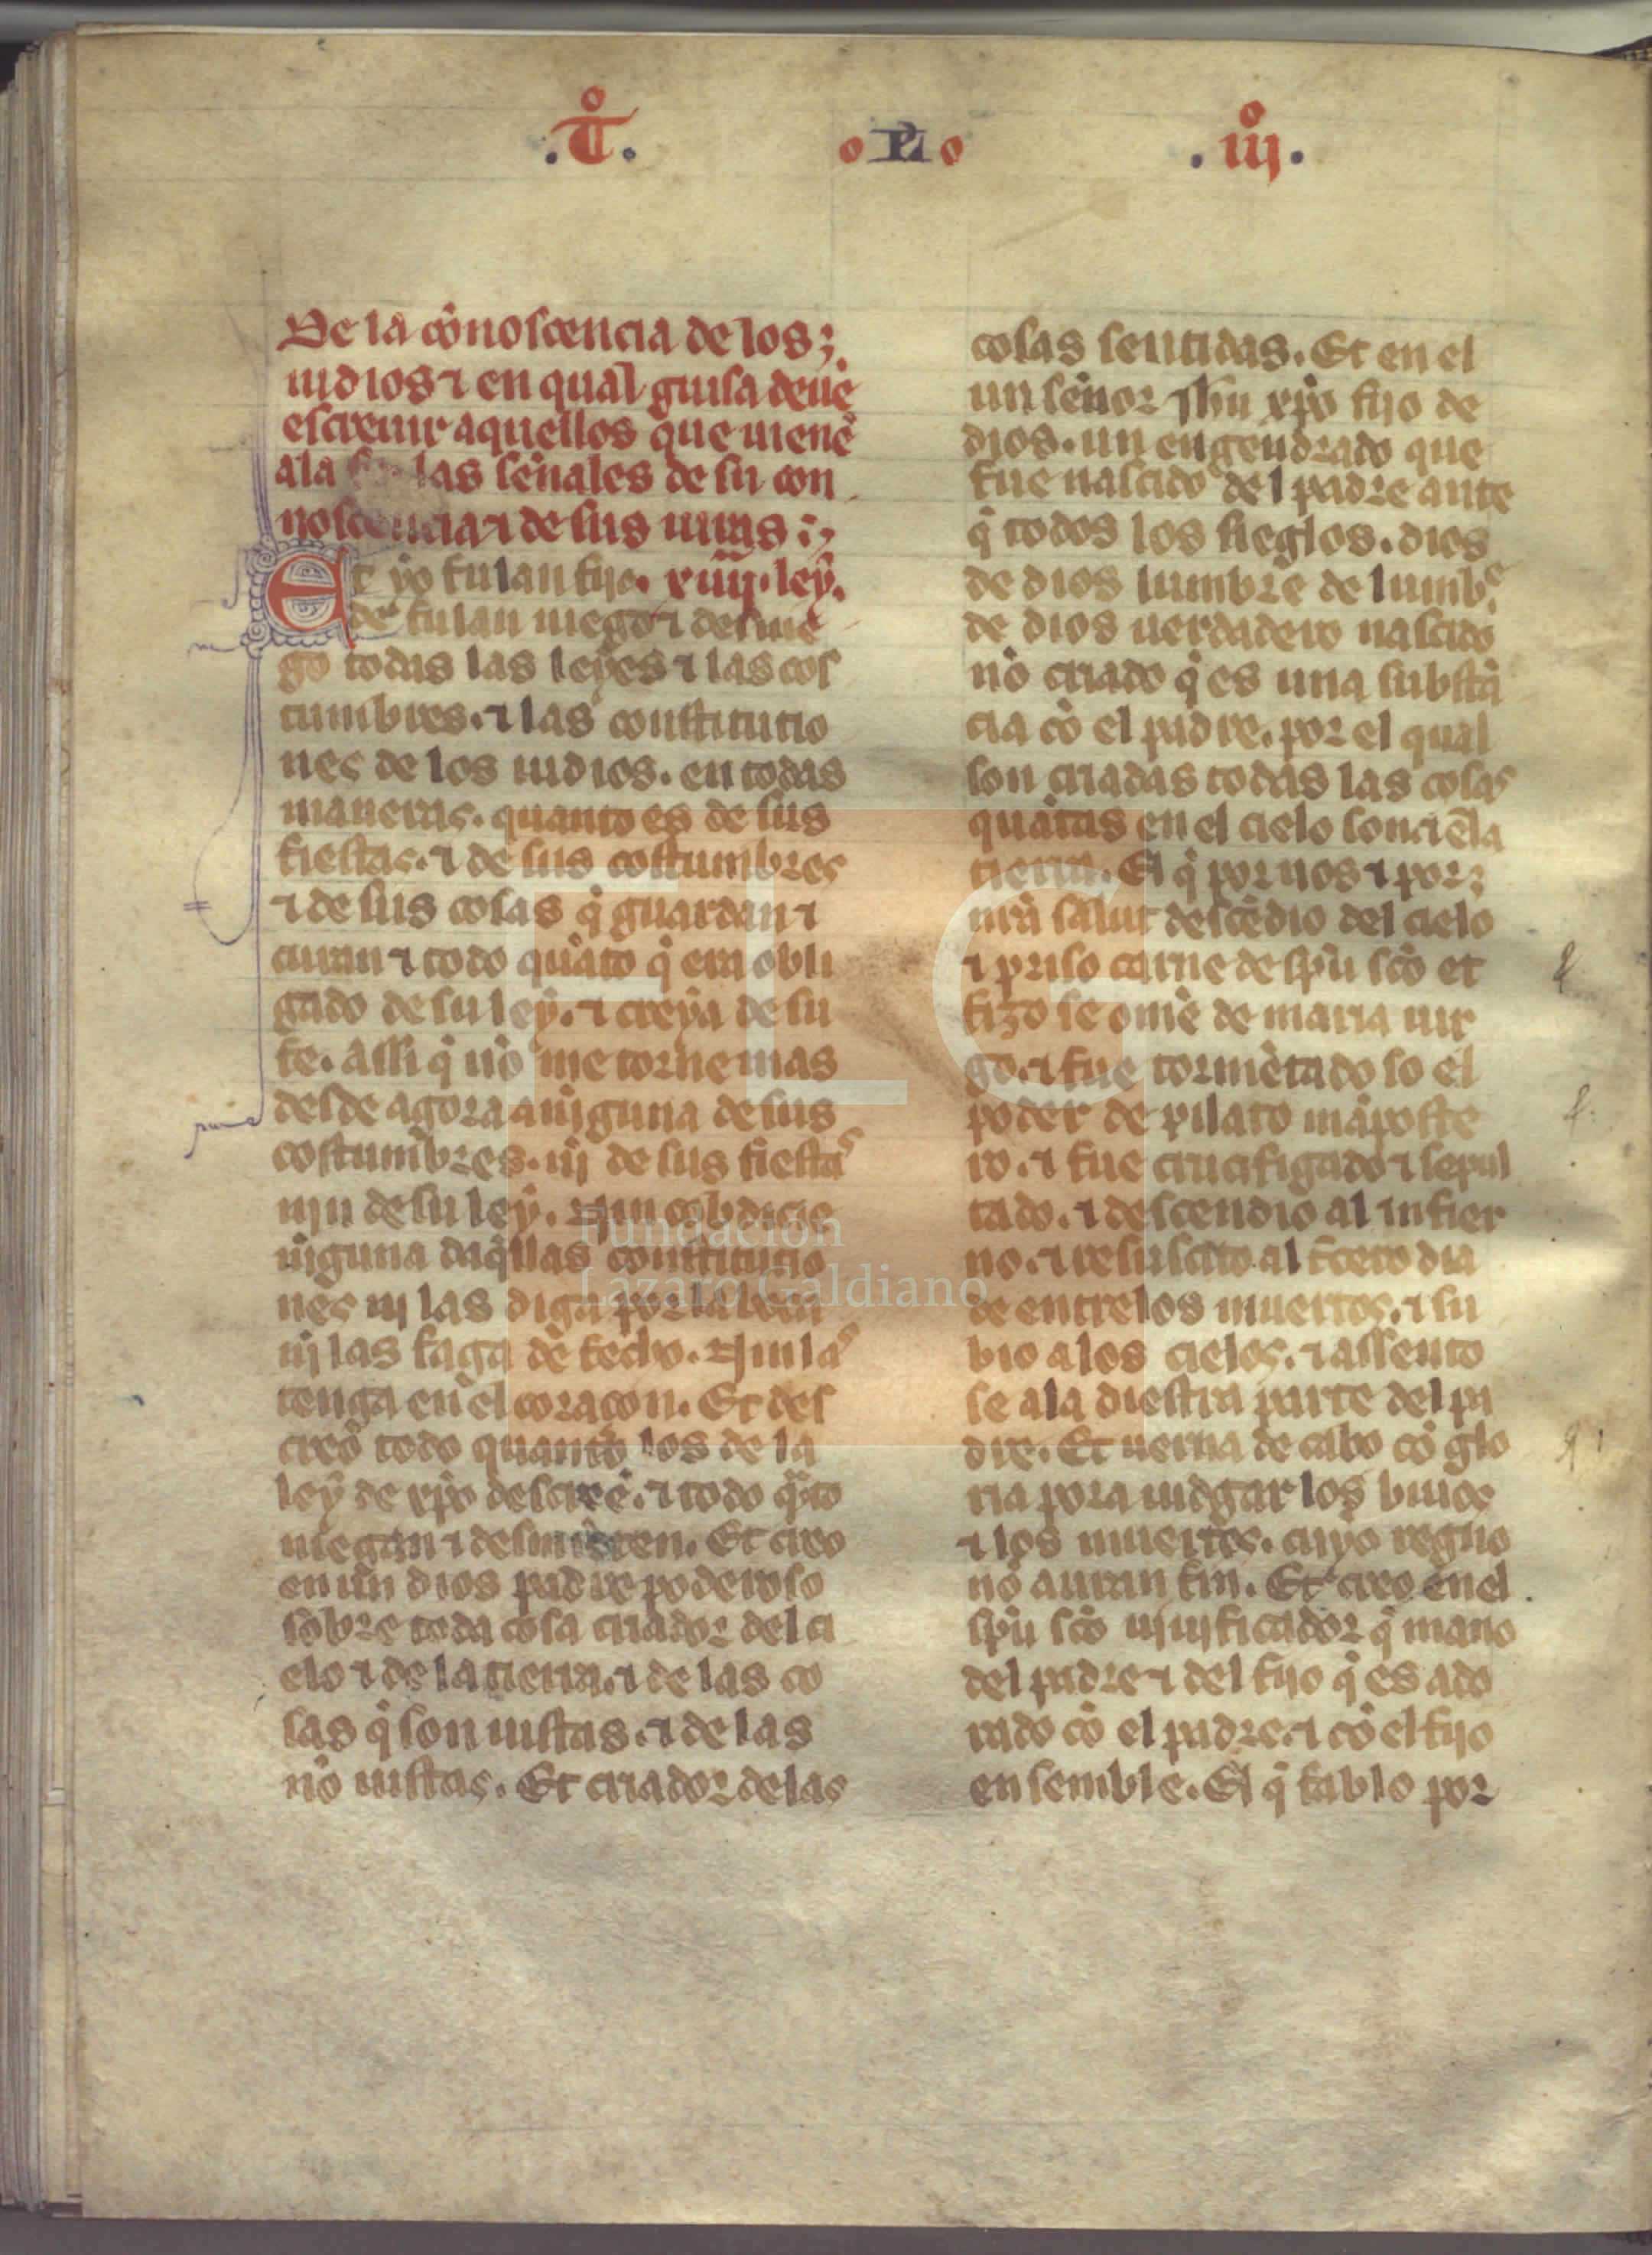 .T̊. o RL o .iij̊.
De la cõnoscencia de los
iudios ⁊ en qual guisa deuẽ
escreuir aquellos que uienẽ
ala las señales de su con
noscencia ⁊ de sus iuras
Et yo fulan fijo. xiiii. ley.
de fulan niego ⁊ desnie
go todas las leyes ⁊ las cos
tumbres. ⁊ las constitutio
nes de los iudios. en todas
maneras. quanto es de sus
fiestas. ⁊ de sus costumbres
⁊ de sus cosas q̃ guardan ⁊
curan ⁊ todo quãto q̃ era obli
gado de su ley. ⁊ creya de su
fe. Assi q̃ nõ me torne mas
desde agora a nĩguna de sus
costumbres. nj̃ de sus fiestas
nin de su ley. Nin cobdicie
nĩguna daq̃llas constitutio
nes nj̃ las diga por la boca
nj̃ las faga de fecho. Nin las
tenga en el coraçon. Et des
creo todo quanto los de la
ley de xp̃o descreẽ. ⁊ todo q̃nto
niegan ⁊ desmieten. Et creo
en un dios padre poderoso
sobre toda cosa criador del ci
elo ⁊ de la tierra. ⁊ de las co
sas q̃ son uistas. ⁊ de las
nõ uistas. Et criador de las
cosas sentidas. Et en el
un señor Jhũ xp̃o fijo de
dios. un engendrado que
fue nascido del padre ante
q̃ todos los sieglos. dios
de dios lumbre de lumbᵉ.
de dios uerdadero nascido
nõ criado q̃ es una substã
cia cõ el padre. por el qual
son criadas todas las cosas
quãtas en el cielo son. ⁊ ẽ la
tierra. El q̃ por nos ⁊ por
nr̃a salut descẽdio del cielo
⁊ priso carne de sp̃u sc̃o et
fizo se omẽ de maria uir
go. ⁊ fue tormẽtado so el
poder de pilato mãposte
ro. ⁊ fue crucifigado ⁊ sepul
tado. ⁊ descendio al infier
no. ⁊ resuscito al t̃cero dia
de entre los muertos. ⁊ su
bio a los cielos. ⁊ assento
se a la diestra parte del pa
dre. Et uerna de cabo cõ glo
ria pora iudgar los biuos
⁊ los muertos. cuyo regno
nõ auran fin. Et creo en el
sp̃u sc̃o uiuificador q̃ mano
del padre ⁊ del fijo q̃ es ado
rado cõ el padre. ⁊ cõ el fijo
en semble. El q̃ fablo por
FLG
Fundación
Lázaro Galdiano